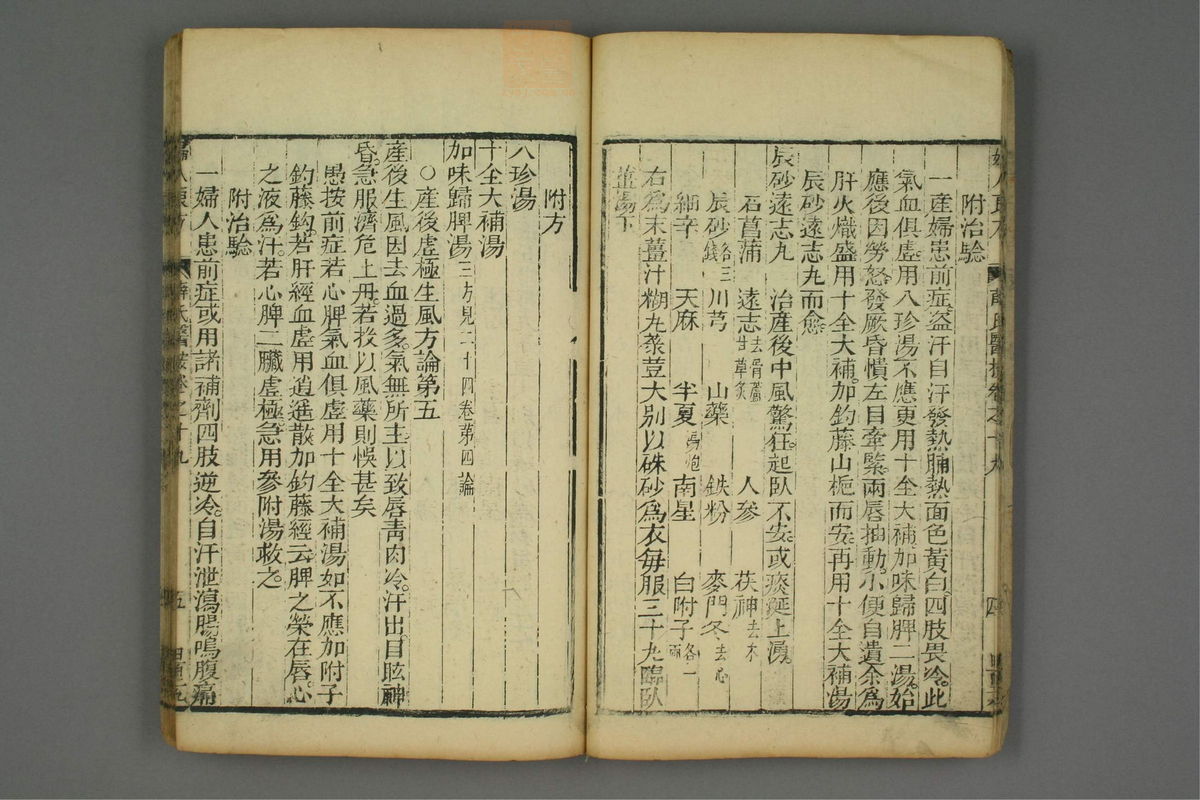 附治驗
一產婦患前症盜汗自汗發熱晡熱面色黃白四肢畏冷此
氣血俱虛用八珍湯不應更用十全大補加味歸脾二湯始
應後因勞怒發厥昏憒左目牽緊兩唇抽動小便自遺余為
肝火熾盛用十全大補加鈎藤山梔而安再用十全大補湯
辰砂遠志丸而愈
辰砂遠志丸 治產後中風驚狂起臥不安或痰涎上湧
石菖蒲 遠志去骨蘆甘草煑 人參 茯神去木
辰砂各三錢 川芎 山藥 鉄粉 麥門冬去心
細辛 天麻 半夏湯炮 南星 白附子各一兩
右為末薑汁糊丸菉荳大別以硃砂為衣每服三十丸臨臥
薑湯下
婦人良方 薛氏醫按卷之十九 五
附方
八珍湯
十全大補湯
加味歸脾湯三方見二十四卷第四論
○產後虛極生風方論第五
產後生風因去血過多氣無所主以致唇青肉冷汗出目眩神
昏急服濟危上丹若投以風藥則悞甚矣
愚按前症若心脾氣血俱虛用十全大補湯如不應加附子
鈎藤鈎若肝經血虛用逍遙散加鈎藤經云脾之榮在唇心
之液為汗若心脾二臟虛極急用參附湯救之
附治驗
一婦人患前症或用諸補劑四肢逆冷自汗泄瀉腸鳴腹痛